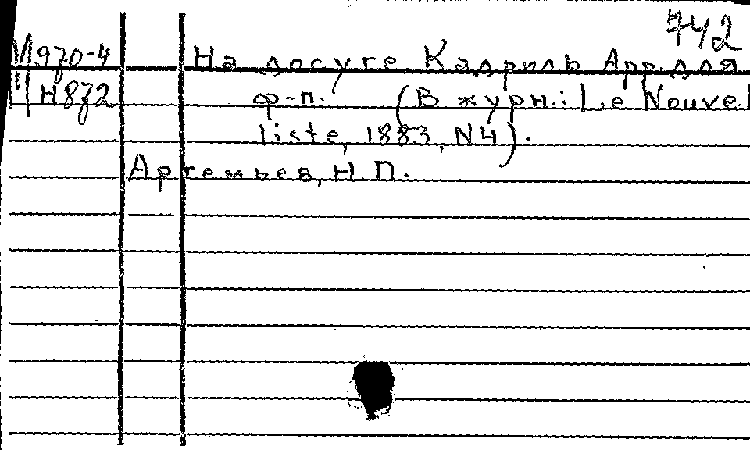 742
М 970-4 На досуге Кадриль Арр. для
Ц Н872 ф-п. (В журн.: Le Nouvel
liste, 1883, N4).
Артемьев, Н П.